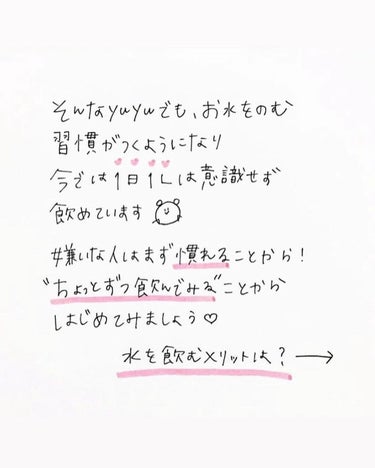 そんなyuyuでも、お水をのむ
習慣がつくようになり
今では1日1Lは意識せず
飲めています
嫌いな人はまず慣れることから!
"ちょっとずつ飲んでみる"ことから
はじめてみましょう♡
水を飲むメリットは?→